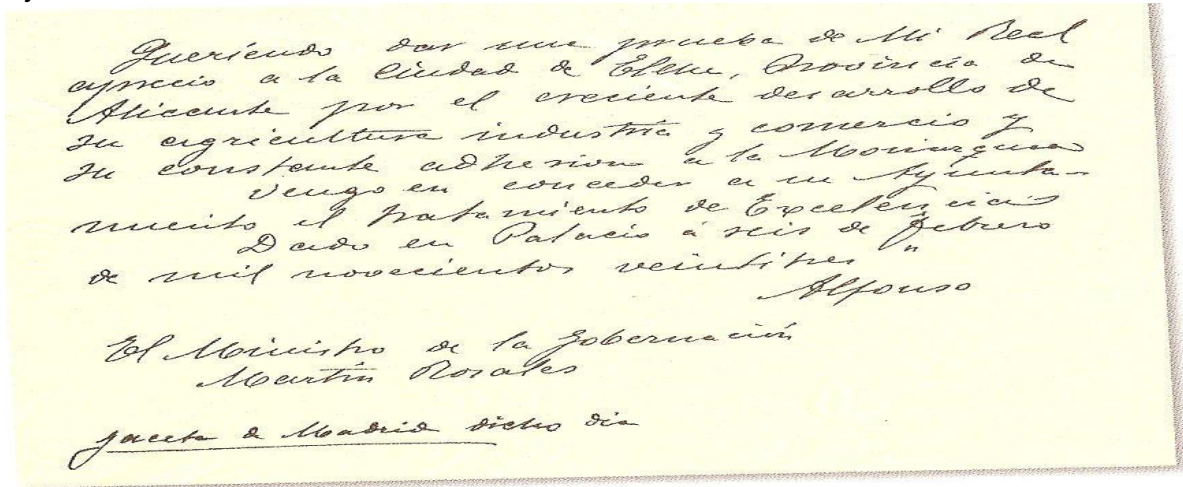 Queriendo dar una prueba de Mi Real
aprecio a la Ciudad de Elche, Provincia de
Alicante por el creciente desarrollo de
su agricultura industria y comercio y
su constante adhesion a la Monarquia
Vengo en conceder a su Ayunta-
miento el tratamiento de Excelencia
Dado en Palacio á seis de febrero
de mil novecientos veintitres "
Alfonso
El Ministro de la Gobernación
Martin Rosales
gaceta de Madrid dicho dia